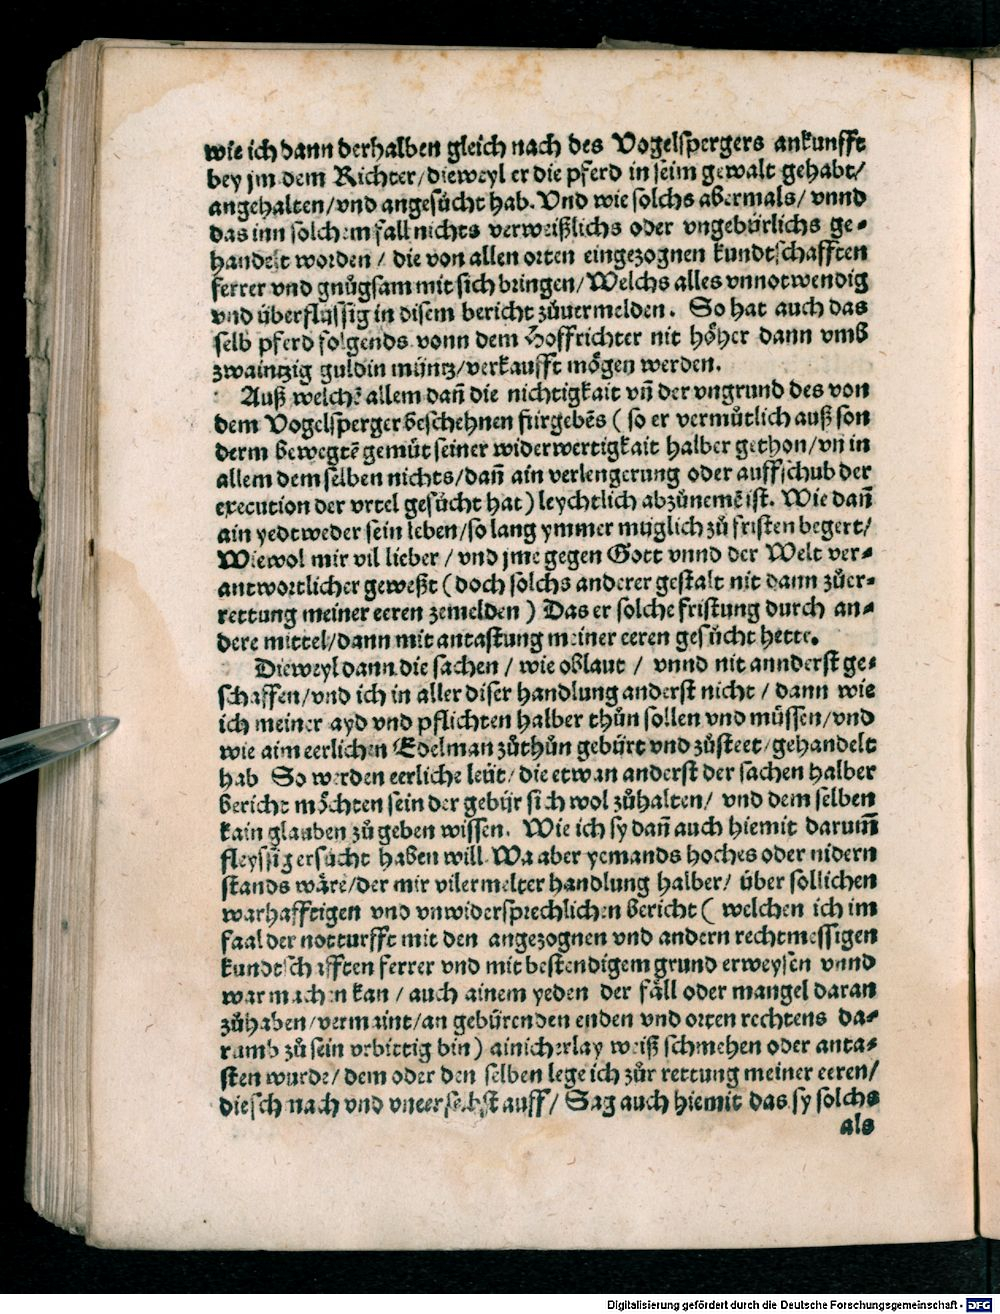 wie ich dann derhalben gleich nach des Vogelspergers ankunfft
bey jm dem Richter/ dieweyl er die pferd in seim gewalt gehabt/
angehalten/ vnd angesůcht hab. Vnd wie solchs abermals/ vnnd
das inn solchem fall nichts verweißlichs oder vngebürlichs ge⸗
handelt worden / die von allen orten eingezognen kundtschafften
ferrer vnd gnůgsam mit sich bringen/ Welchs alles vnnotwendig
vnd überflüssig in disem bericht zůuermelden. So hat auch das
selb pferd folgends vonn dem Hoffrichter nit höher dann vmb
zwaintzig guldin müntz/ verkaufft mögen werden.
Auß welchē allem dañ die nichtigkait vñ der vngrund des von
dem Vogelsperger beschehnen fürgebēs ( so er vermůtlich auß son
derm bewegtē gemüt seiner widerwertigkait halber gethon/ vñ in
allem dem selben nichts/ dañ ain verlengerung oder auffschub der
execution der vrtel gesůcht hat ) leychtlich abzůnemē ist. Wie dañ
ain yedtweder sein leben/ so lang ymmer müglich zů fristen begert/
Wiewol mir vil lieber / vnd jme gegen Gott vnnd der Welt ver⸗
antwortlicher geweßt ( doch solchs anderer gestalt nit dann zůer⸗
rettung meiner eeren zemelden ) Das er solche fristung durch an⸗
dere mittel/ dann mit antastung meiner eeren gesůcht hette.
Dieweyl dann die sachen / wie oblaut / vnnd nit annderst ge⸗
schaffen/ vnd ich in aller diser handlung anderst nicht / dann wie
ich meiner ayd vnd pflichten halber thůn sollen vnd müssen/ vnd
wie aim eerlichen Edelman zůthůn gebürt vnd zůsteet/ gehandelt
hab So werden eerliche leüt/ die etwan anderst der sachen halber
bericht möchten sein der gebür sich wol zůhalten/ vnd dem selben
kain glauben zů geben wissen. Wie ich sy dañ auch hiemit darum̃
fleyssig ersůcht haben will. Wa aber yemands hoches oder nidern
stands wäre/ der mir vilermelter handlung halber/ über sollichen
warhafftigen vnd vnwidersprechlichen bericht ( welchen ich im
faal der notturfft mit den angezognen vnd andern rechtmessigen
kundtschafften ferrer vnd mit bestendigem grund erweysen vnnd
war machen kan / auch ainem yeden der fäll oder mangel daran
zůhaben/ vermaint/ an gebürenden enden vnd orten rechtens da⸗
rumb zů sein vrbittig bin ) ainicherlay weiß schmehen oder anta⸗
sten wurde/ dem oder den selben lege ich zůr rettung meiner eeren/
die sch nach vnd vneer selbst auff/ Sag auch hiemit das sy solchs
als
Digitalisierung gefördert durch die Deutsche Forschungsgemeinschaft - DFG